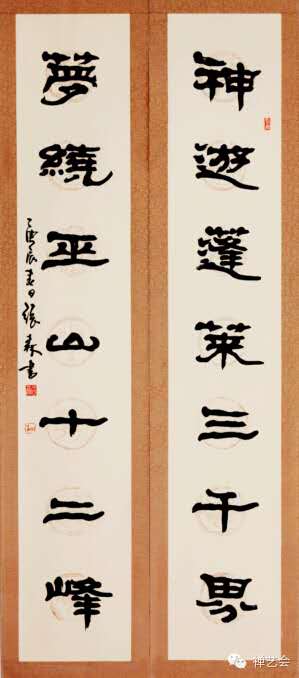 神遊蓬萊三千界
夢繞巫山十二峰
庚辰春日張森書
禅艺会